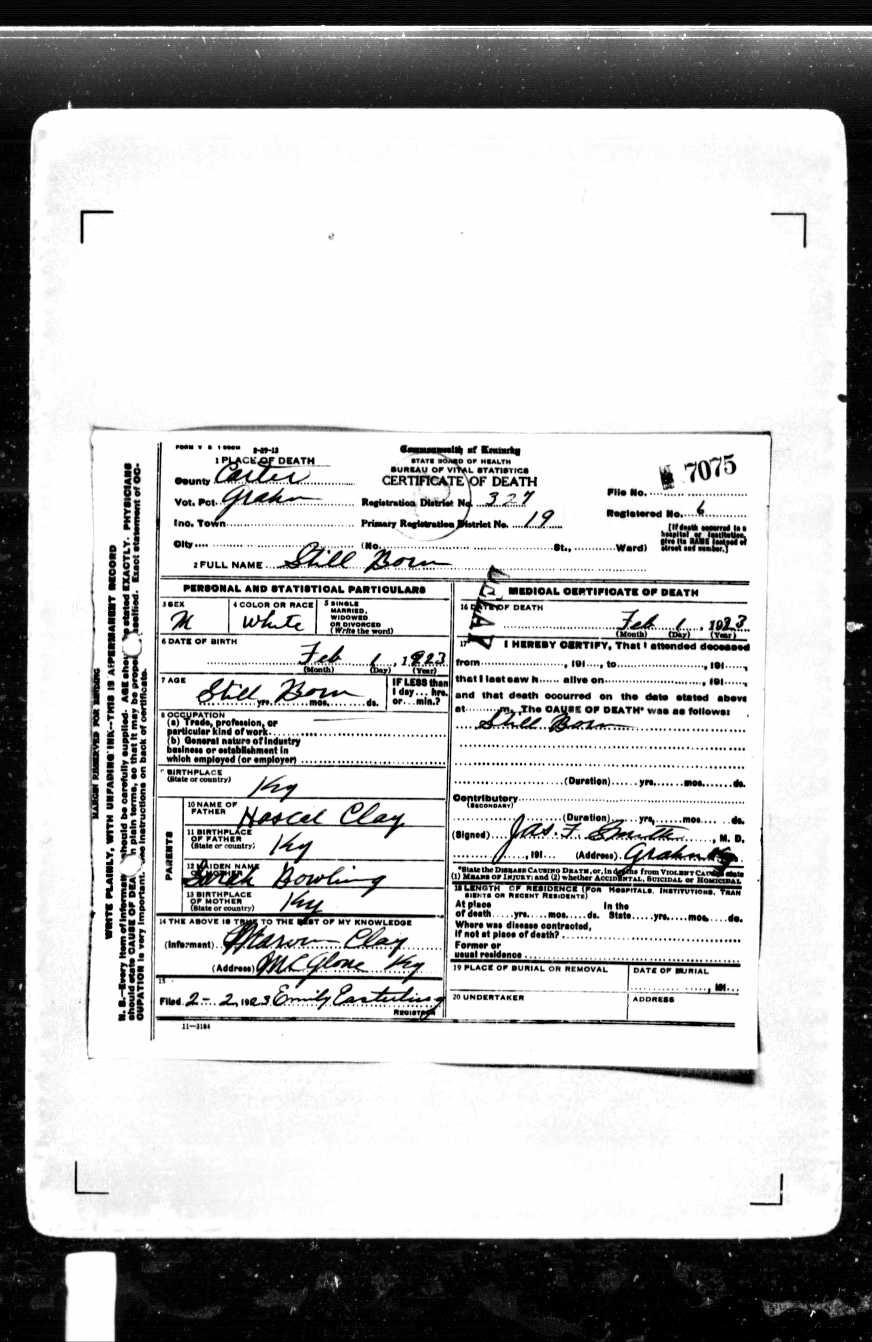 FORM V S 1 500M 3-29-13
Commonwealth of Kentucky
STATE BOARD OF HEALTH
BUREAU OF VITAL STATISTICS
CERTIFICATE OF DEATH
1 PLACE OF DEATH
County Carter
Vot. Pct. Grahn
Inc. Town
City
Registration District No. 327
Primary Registration District No. 19
(No. St., Ward)
File No. 7075
Registered No. 6
[If death occurred in a
hospital or institution,
give its NAME instead of
street and number.]
2 FULL NAME Still Born
PERSONAL AND STATISTICAL PARTICULARS
3 SEX
M
4 COLOR OR RACE
White
5 SINGLE
MARRIED,
WIDOWED
OR DIVORCED
(Write the word)
6 DATE OF BIRTH
Feb 1, 1923
(Month) (Day) (Year)
7 AGE
Still Born
yrs. mos. ds.
IF LESS than
1 day... hrs.
or...min.?
8 OCCUPATION
(a) Trade, profession, or
particular kind of work
(b) General nature of industry
business or establishment in
which employed (or employer)
9 BIRTHPLACE
(State or country)
Ky
PARENTS
10 NAME OF
FATHER
Hascal Clay
11 BIRTHPLACE
OF FATHER
(State or country)
Ky
12 MAIDEN NAME
OF MOTHER
Sarah Bowling
13 BIRTHPLACE
OF MOTHER
(State or country)
Ky
14 THE ABOVE IS TRUE TO THE BEST OF MY KNOWLEDGE
(Informant) Clay
(Address) McGlone Ky
15
Filed 2-2, 1923 Emily Easterling
REGISTRAR
11—3184
MEDICAL CERTIFICATE OF DEATH
16 DATE OF DEATH
Feb 1, 1923
(Month) (Day) (Year)
17 I HEREBY CERTIFY, That I attended deceased
from , 191 , to , 191 ,
that I last saw h alive on , 191 ,
and that death occurred on the date stated above
at m. The CAUSE OF DEATH* was as follows:
Still Born
(Duration) yrs. mos. ds.
Contributory
(SECONDARY)
(Duration) yrs. mos. ds.
(Signed) Jas. F. Smith, M. D.
, 191 (Address) Grahn Ky
*State the DISEASE CAUSING DEATH, or, in deaths from VIOLENT CAUSES state
(1) MEANS OF INJURY; and (2) whether ACCIDENTAL, SUICIDAL or HOMICIDAL
18 LENGTH OF RESIDENCE (FOR HOSPITALS, INSTITUTIONS, TRAN
SIENTS OR RECENT RESIDENTS)
At place In the
of death yrs. mos. ds. State yrs. mos. ds.
Where was disease contracted,
if not at place of death?
Former or
usual residence
19 PLACE OF BURIAL OR REMOVAL
DATE OF BURIAL
, 191
20 UNDERTAKER
ADDRESS
MARGIN RESERVED FOR BINDING
WRITE PLAINLY, WITH UNFADING INK—THIS IS A PERMANENT RECORD
N. B.—Every item of information should be carefully supplied. AGE should be stated EXACTLY. PHYSICIANS
should state CAUSE OF DEATH in plain terms, so that it may be properly classified. Exact statement of OC-
CUPATION is very important. See instructions on back of certificate.